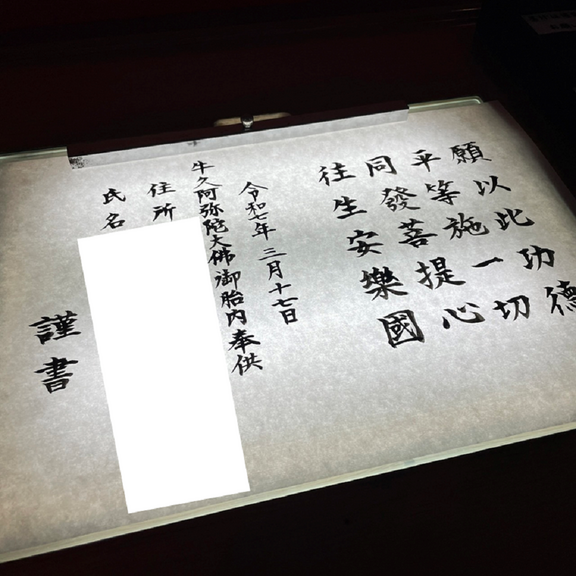 願以此功德
平等施一切
同發菩提心
往生安樂國
令和七年 三月十七日
牛久阿弥陀大佛御胎内奉供
住所
氏名
謹書